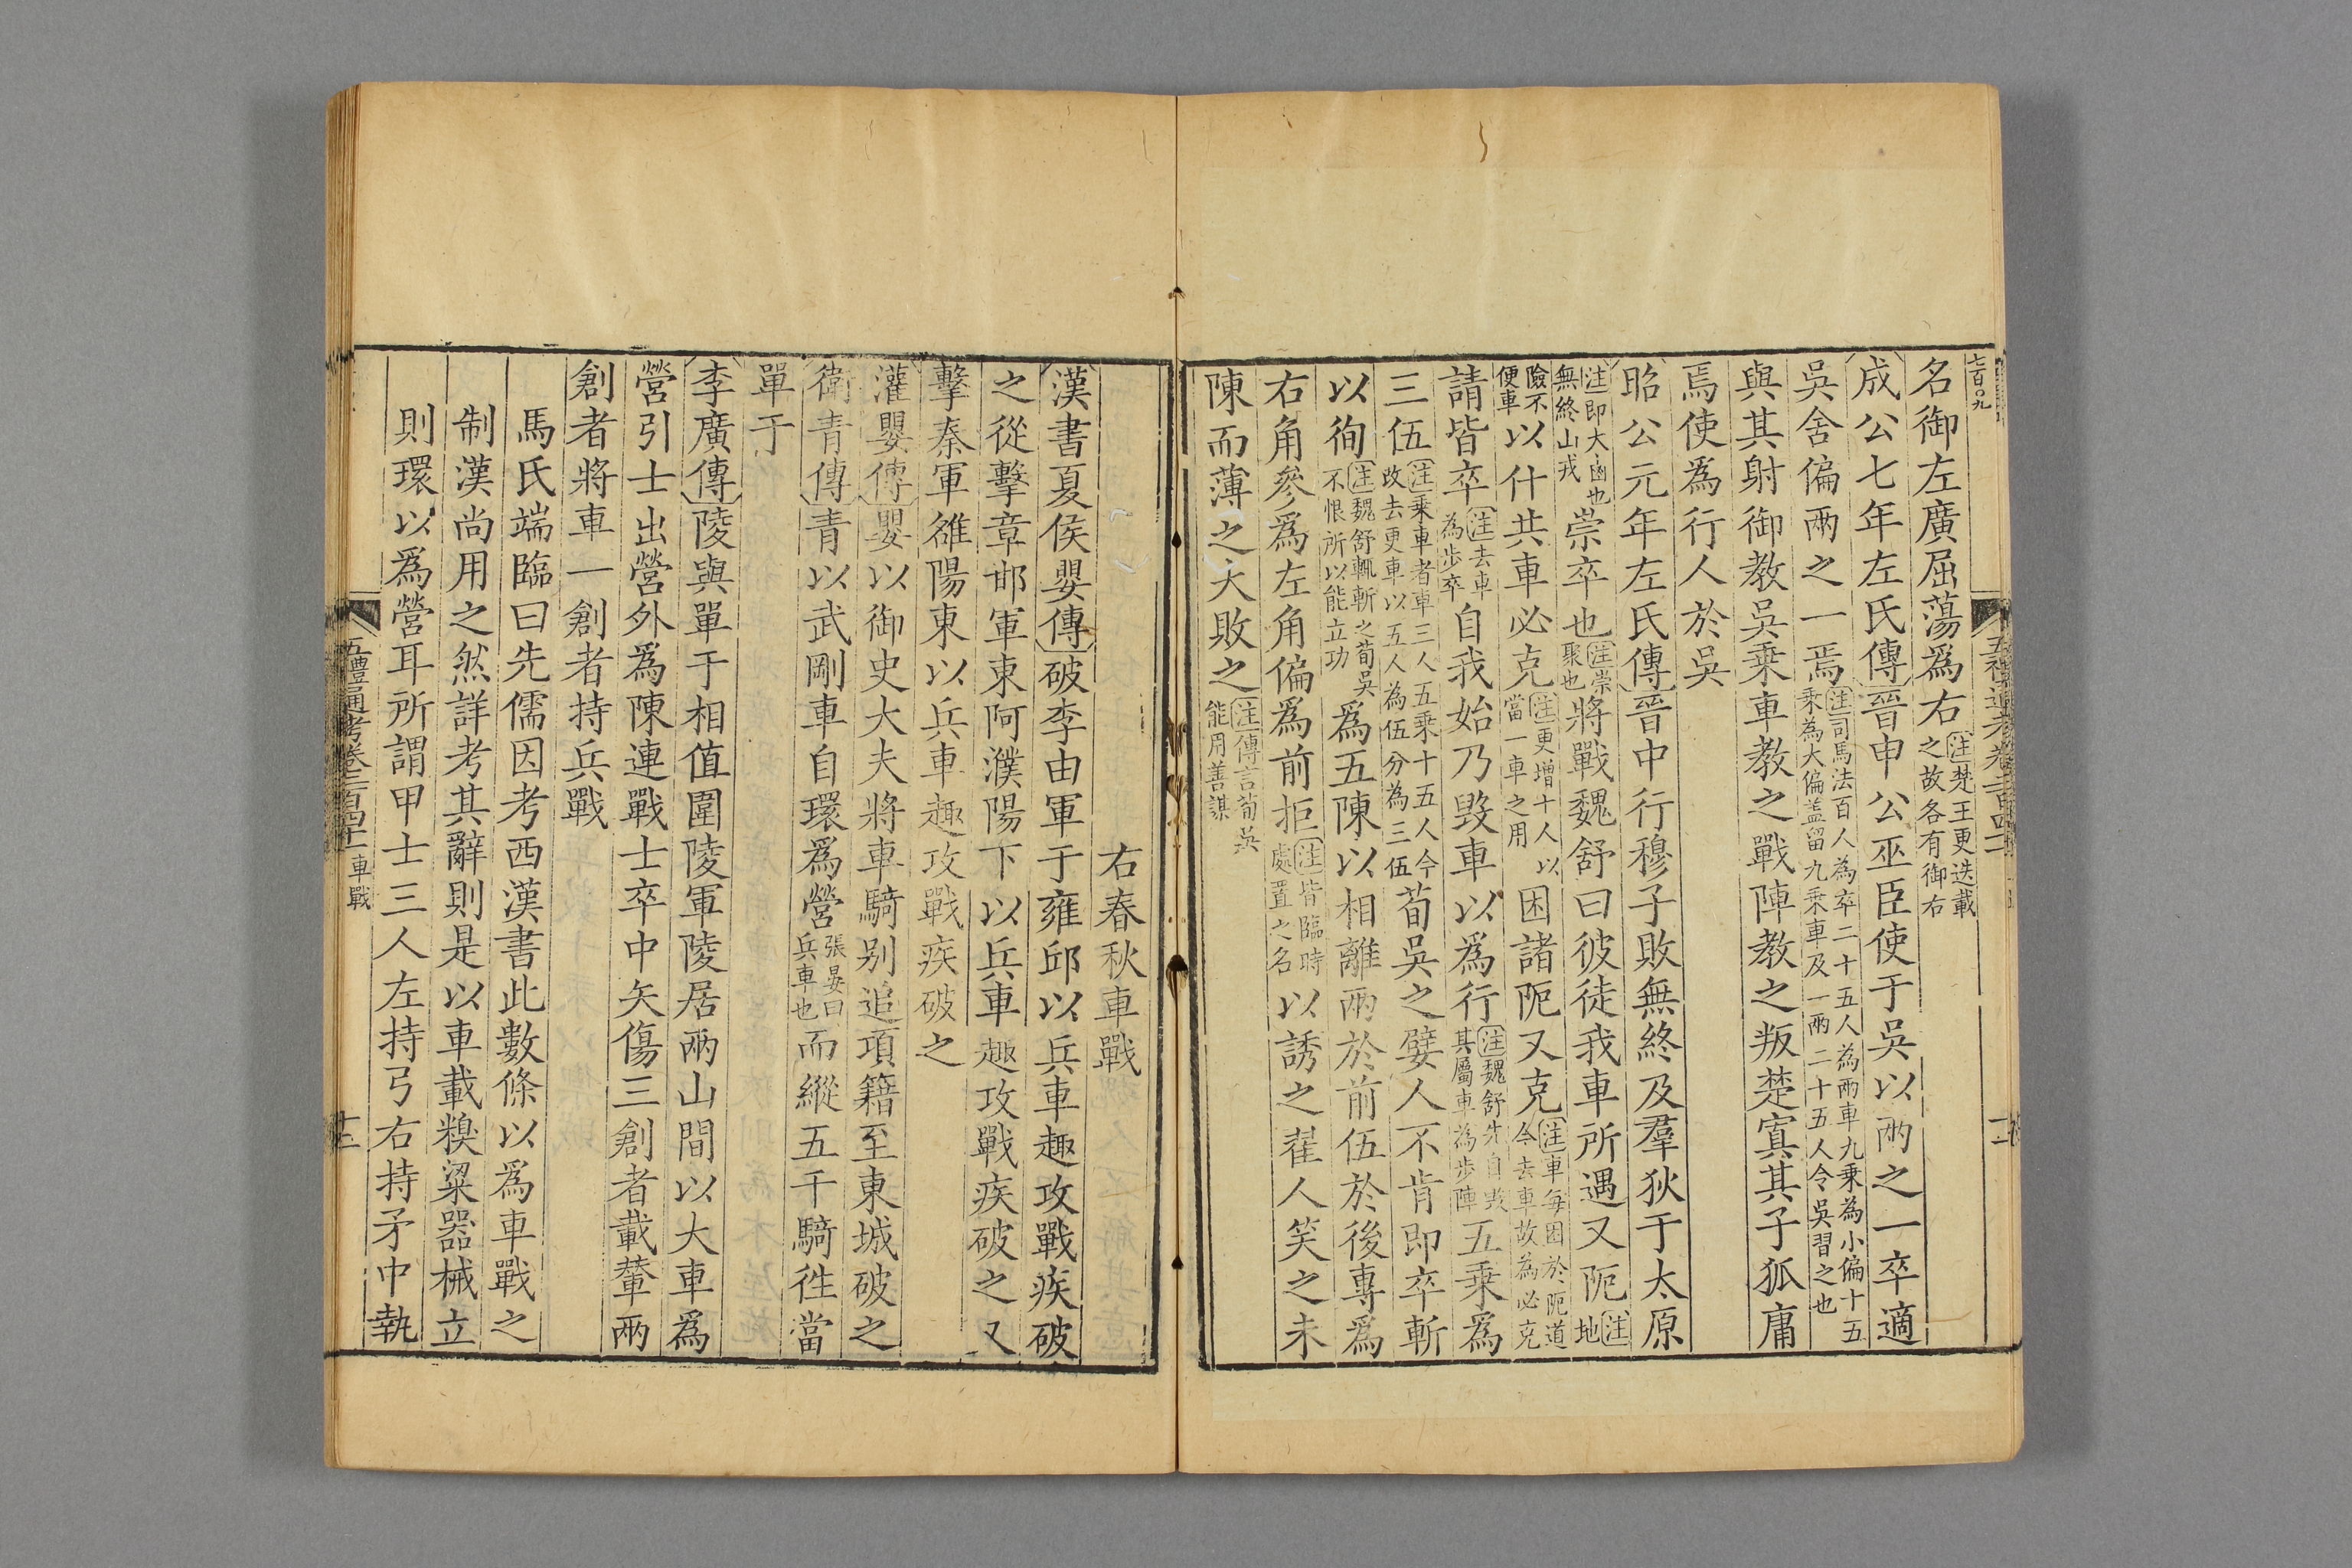 七百〇九
名御左廣屈蕩爲右注楚王更迭載之故各有御右
成公七年左氏傳晉申公巫臣使于吳以兩之一卒適
吳舍偏兩之一焉注司馬法百人為卒二十五人為兩車九乘為小偏十五乘為大偏盖留九乘車及一兩二十五人令吳習之也
與其射御教吳乘車教之戰陣教之叛楚寘其子狐庸
焉使爲行人於吳
昭公元年左氏傳晉中行穆子敗無終及羣狄于太原
注即大鹵也無終山戎崇卒也注崇聚也將戰魏舒曰彼徒我車所遇又阨注地
險不便車以什共車必克注更增十人以當一車之用困諸阨又克注車每困於阨道今去車故為必克
請皆卒注去車為步卒自我始乃毀車以爲行注魏舒先自毀其屬車為步陣五乘爲
三伍注乘車者車三人五乘十五人今改去更車以五人為伍分為三伍荀吳之嬖人不肯即卒斬
以徇注魏舒輒斬之荀吳不恨所以能立功爲五陳以相離兩於前伍於後專爲
右角參爲左角偏爲前拒注皆臨時處置之名以誘之翟人笑之未
陳而薄之大敗之注傳言荀吳能用善謀
右春秋車戰
漢書夏侯嬰傳破李由軍于雍邱以兵車趣攻戰疾破
之從擊章邯軍東阿濮陽下以兵車趣攻戰疾破之又
擊秦軍雒陽東以兵車趣攻戰疾破之
灌嬰傳嬰以御史大夫將車騎别追項籍至東城破之
衛青傳青以武剛車自環爲營張晏曰兵車也而縱五千騎徃當
單于
李廣傳陵與單于相值圍陵軍陵居兩山間以大車爲
營引士出營外爲陳連戰士卒中矢傷三創者載輦兩
創者將車一創者持兵戰
馬氏端臨曰先儒因考西漢書此數條以爲車戰之
制漢尚用之然詳考其辭則是以車載糗粱器械立
則環以爲營耳所謂甲士三人左持弓右持矛中執
五禮通考卷二百四十一 車戰 十二